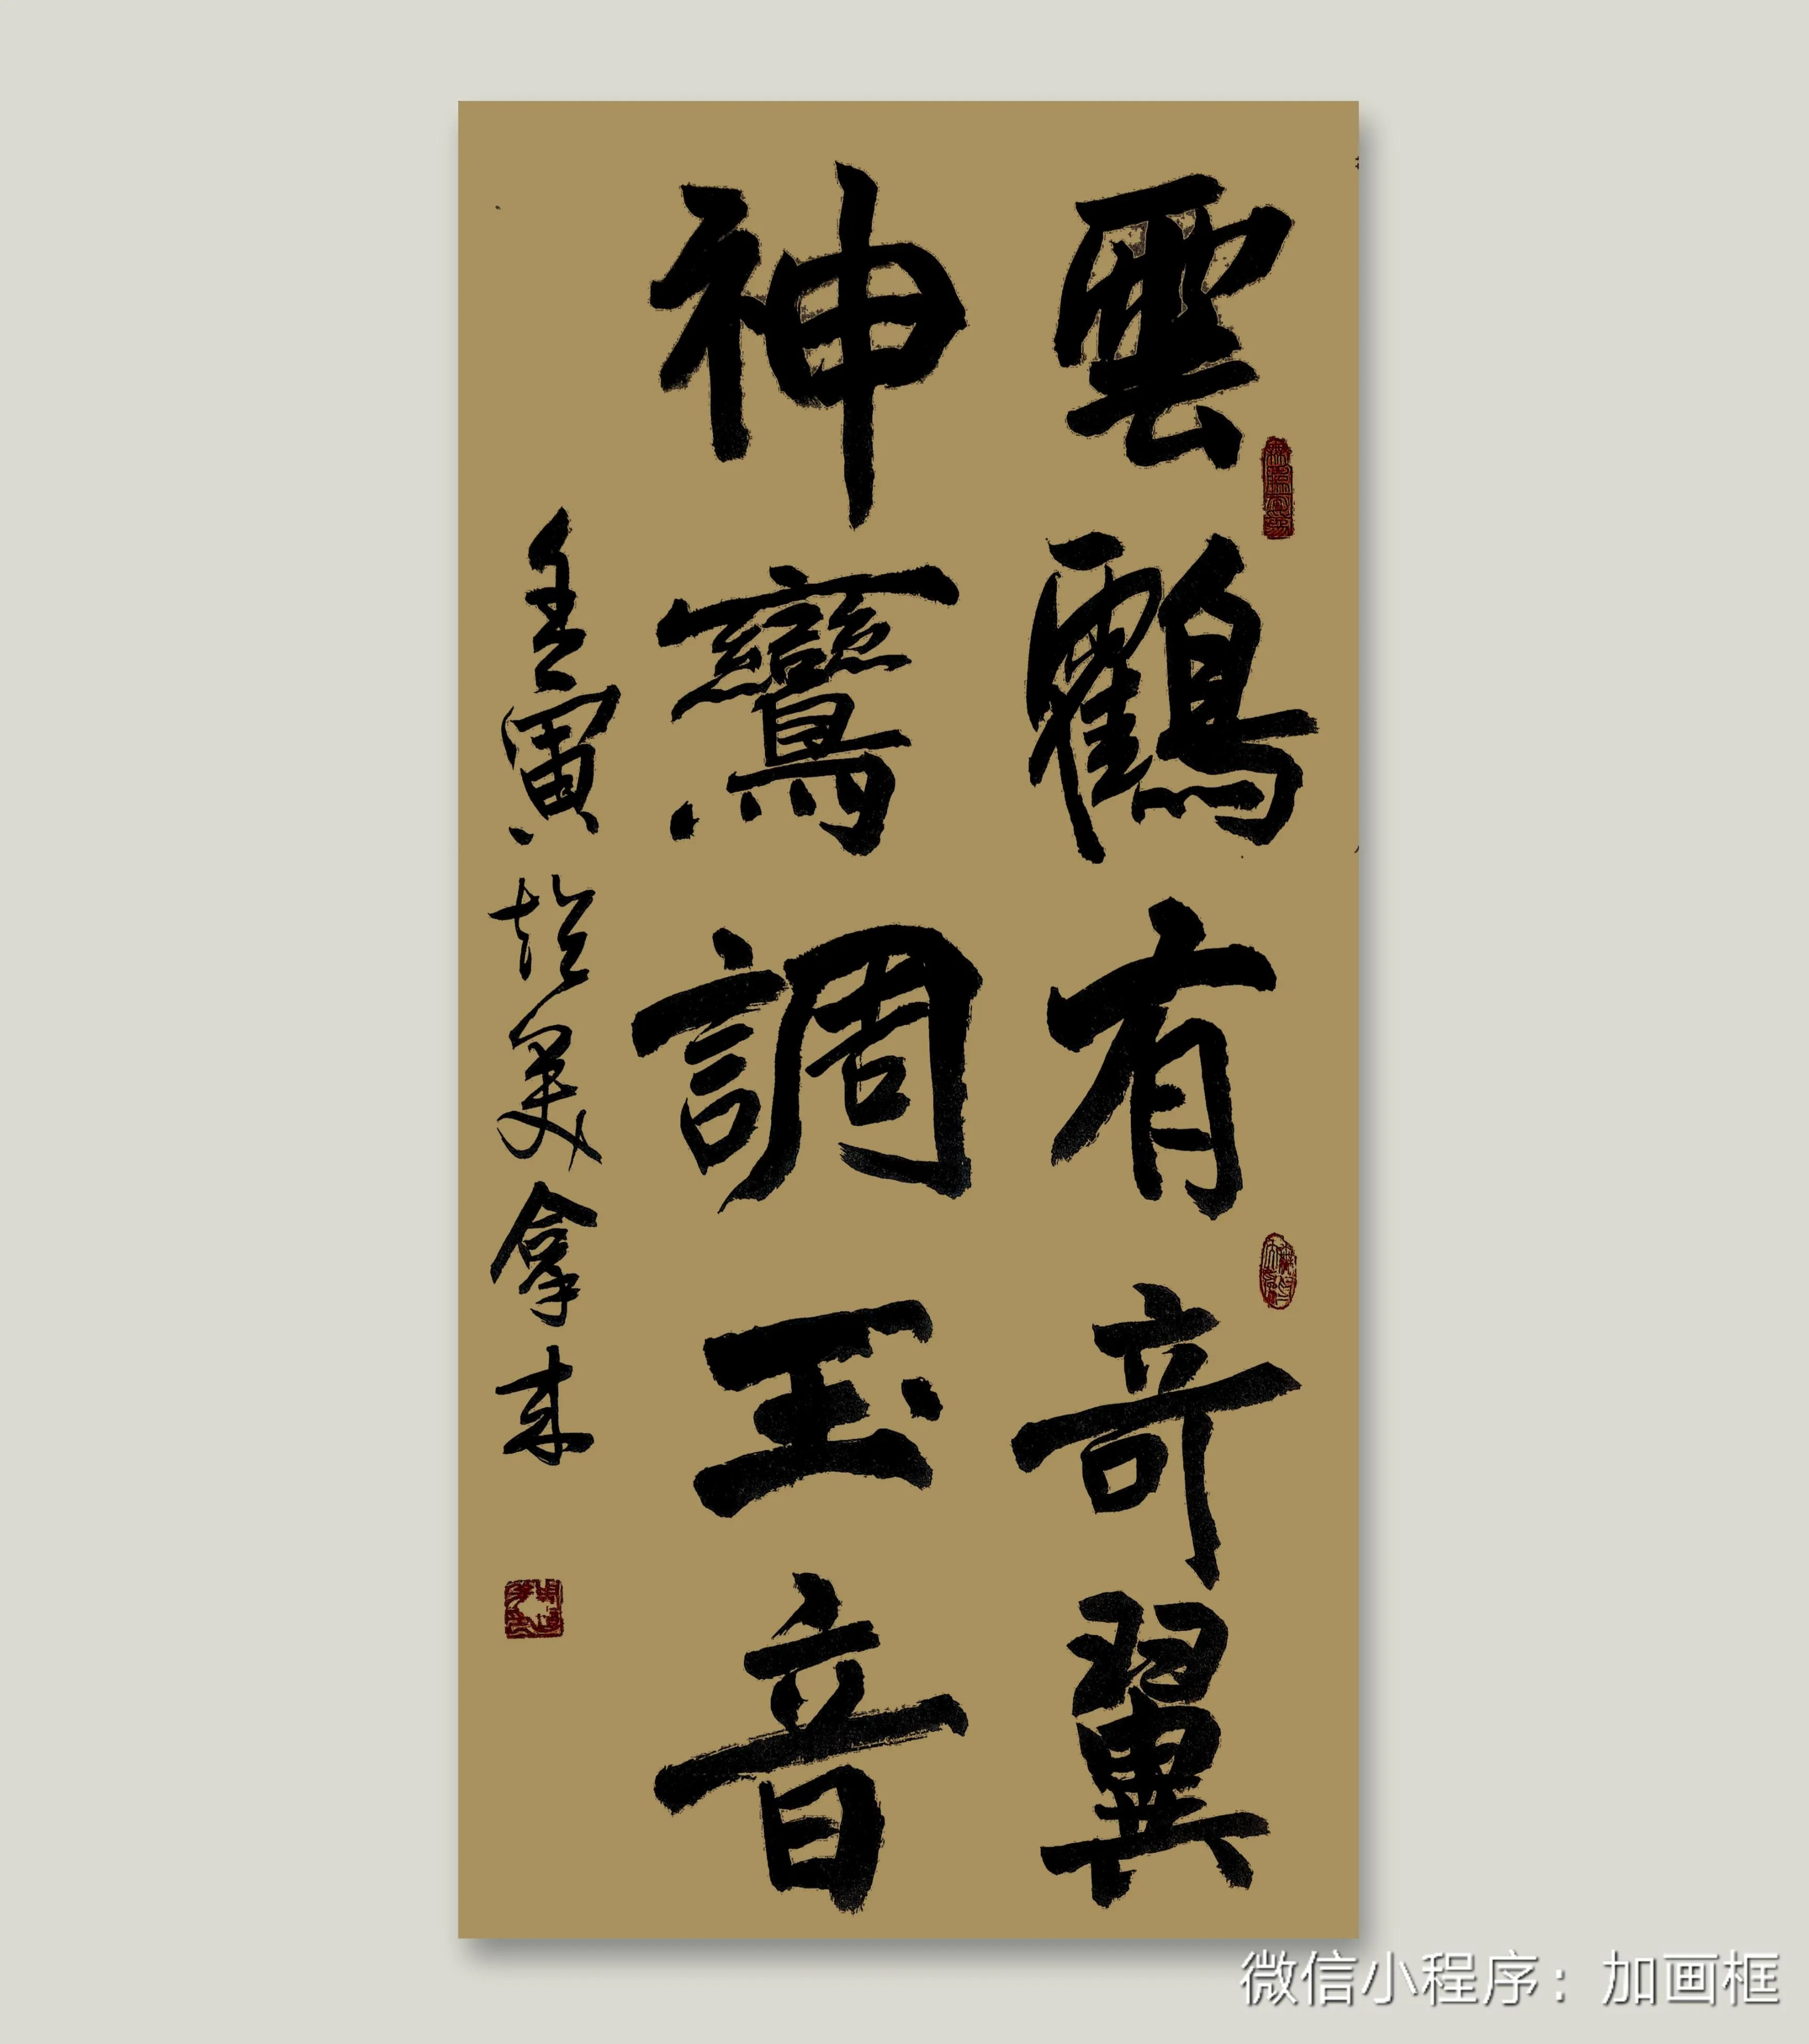 雲鸖有奇翼
神鸞調玉音
壬寅於美拿來
微信小程序：加画框